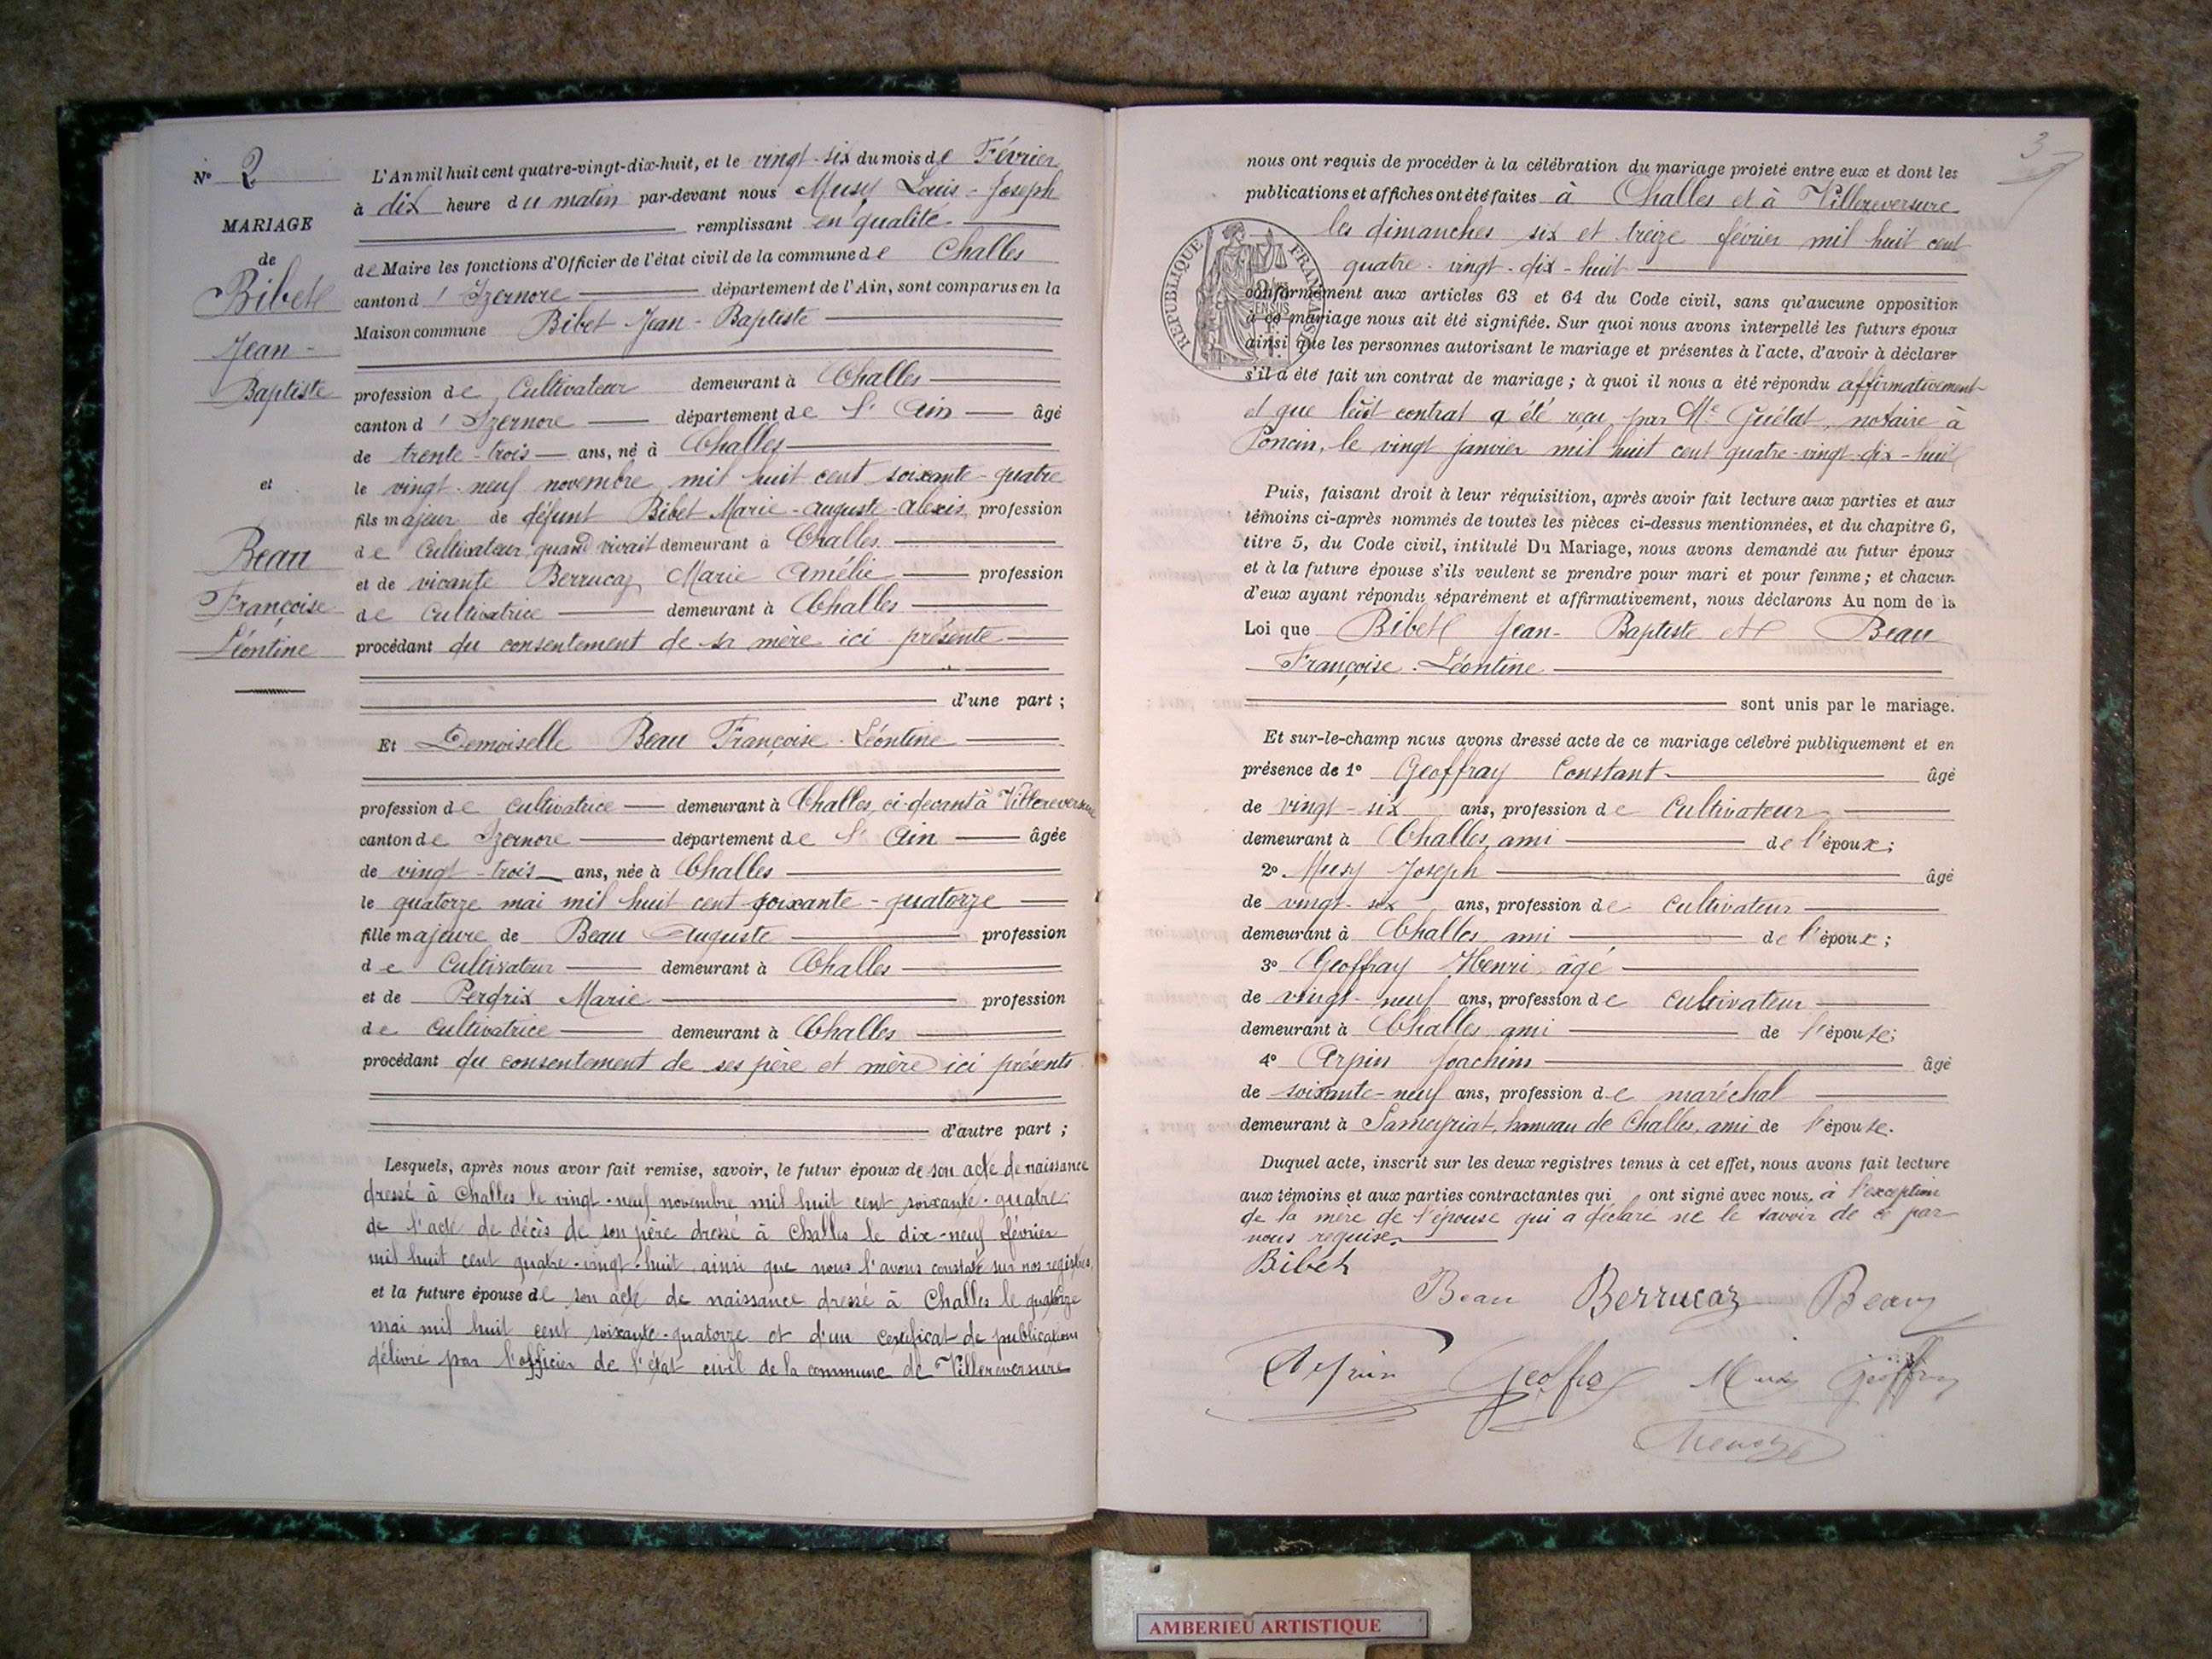 N° 2
MARIAGE
de
Bibet
Jean-
Baptiste
et
Beau
Françoise
Léontine
L'An mil huit cent quatre-vingt-dix-huit, et le vingt-six du mois de Février
à dix heure du matin par-devant nous Musy Louis-Joseph
remplissant en qualité
de Maire les fonctions d'Officier de l'état civil de la commune de Challes
canton d'Izernore département de l'Ain, sont comparus en la
Maison commune Bibet Jean-Baptiste
profession de Cultivateur demeurant à Challes
canton d'Izernore département de l'Ain âgé
de trente-trois ans, né à Challes
le vingt-neuf novembre mil huit cent soixante-quatre
fils majeur de défunt Bibet Marie-Auguste-Alexis, profession
de Cultivateur quand vivait demeurant à Challes
et de vivante Berrucaz Marie Amélie profession
de Cultivatrice demeurant à Challes
procédant du consentement de sa mère ici présente
d'une part ;
Et Demoiselle Beau Françoise-Léontine
profession de cultivatrice demeurant à Challes, ci-devant à Villereversure
canton de Izernore département de l'Ain âgée
de vingt-trois ans, née à Challes
le quatorze mai mil huit cent soixante-quatorze
fille majeure de Beau Auguste profession
de Cultivateur demeurant à Challes
et de Perdrix Marie profession
de Cultivatrice demeurant à Challes
procédant du consentement de ses père et mère ici présents
d'autre part ;
Lesquels, après nous avoir fait remise, savoir, le futur époux de son acte de naissance
dressé à Challes le vingt-neuf novembre mil huit cent soixante-quatre
de l'acte de décès de son père dressé à Challes le dix-neuf février
mil huit cent quatre-vingt-huit ainsi que nous l'avons constaté sur nos registres,
et la future épouse de son acte de naissance dressé à Challes le quatorze
mai mil huit cent soixante-quatorze et d'un certificat de publications
délivré par l'officier de l'état civil de la commune de Villereversure
3
nous ont requis de procéder à la célébration du mariage projeté entre eux et dont les
publications et affiches ont été faites à Challes et à Villereversure
les dimanches six et treize février mil huit cent
quatre-vingt-dix-huit
REPUBLIQUE FRANÇAISE
conformément aux articles 63 et 64 du Code civil, sans qu'aucune opposition
à ce mariage nous ait été signifiée. Sur quoi nous avons interpellé les futurs époux
ainsi que les personnes autorisant le mariage et présentes à l'acte, d'avoir à déclarer
s'il a été fait un contrat de mariage ; à quoi il nous a été répondu affirmativement
et que ledit contrat a été reçu par Me Guélat, notaire à
Poncin, le vingt janvier mil huit cent quatre-vingt-dix-huit
Puis, faisant droit à leur réquisition, après avoir fait lecture aux parties et aux
témoins ci-après nommés de toutes les pièces ci-dessus mentionnées, et du chapitre 6,
titre 5, du Code civil, intitulé Du Mariage, nous avons demandé au futur époux
et à la future épouse s'ils veulent se prendre pour mari et pour femme ; et chacun
d'eux ayant répondu séparément et affirmativement, nous déclarons Au nom de la
Loi que Bibet Jean-Baptiste et Beau
Françoise-Léontine
sont unis par le mariage.
Et sur-le-champ nous avons dressé acte de ce mariage célébré publiquement et en
présence de 1° Geoffray Constant âgé
de vingt-six ans, profession de Cultivateur
demeurant à Challes, ami de l'époux ;
2° Musy Joseph âgé
de vingt-six ans, profession de Cultivateur
demeurant à Challes, ami de l'époux ;
3° Geoffray Henri âgé
de vingt-neuf ans, profession de Cultivateur
demeurant à Challes, ami de l'épouse ;
4° Arpin Joachim âgé
de soixante-neuf ans, profession de maréchal
demeurant à Sameyriat, hameau de Challes, ami de l'épouse.
Duquel acte, inscrit sur les deux registres tenus à cet effet, nous avons fait lecture
aux témoins et aux parties contractantes qui ont signé avec nous, à l'exception
de la mère de l'épouse qui a déclaré ne le savoir de ce par
nous requise.
Bibet
Beau Berrucaz Beau
Arpin Geoffray Musy Geoffray
AMBERIEU ARTISTIQUE